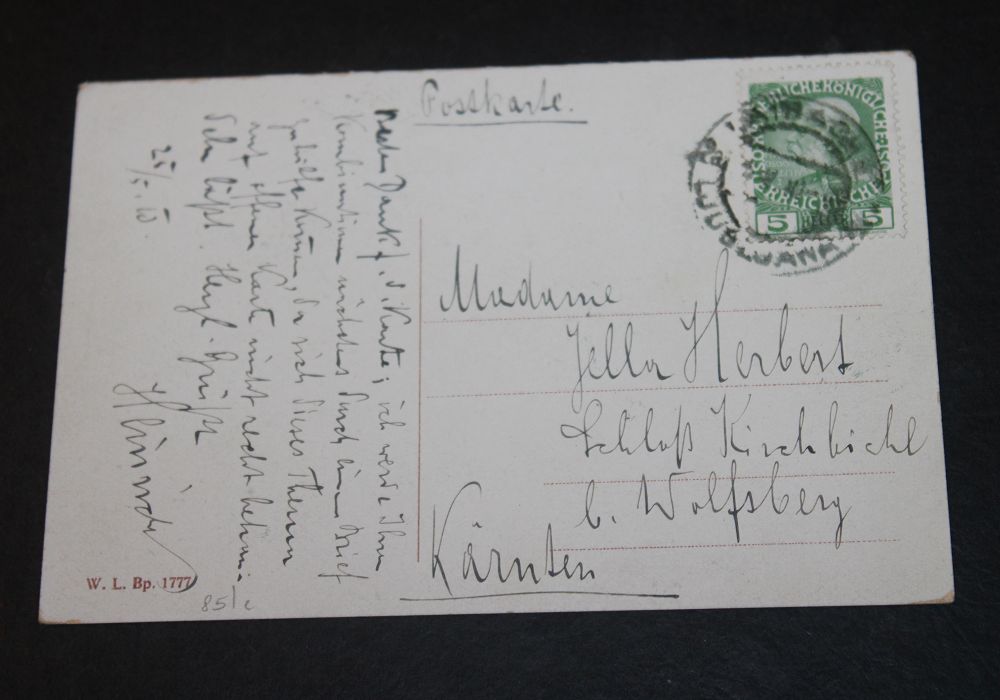 Postkarte.
KAISERLICHE KÖNIGLICHE
ÖSTERREICHISCHE
5 5
LJUBLJANA
Madame
Jella Herbert
Schloß Kirchbichl
b. Wolfsberg
Kärnten
Vielen Dank f. d. Karte; ich werde Ihrer
Kombination nächstens durch einen Brief
zuhilfe kommen, da sich dieses Thema
auf offener Karte nicht recht behan-
deln läßt. Herzl. Grüße
Heinrich
W. L. Bp. 1777